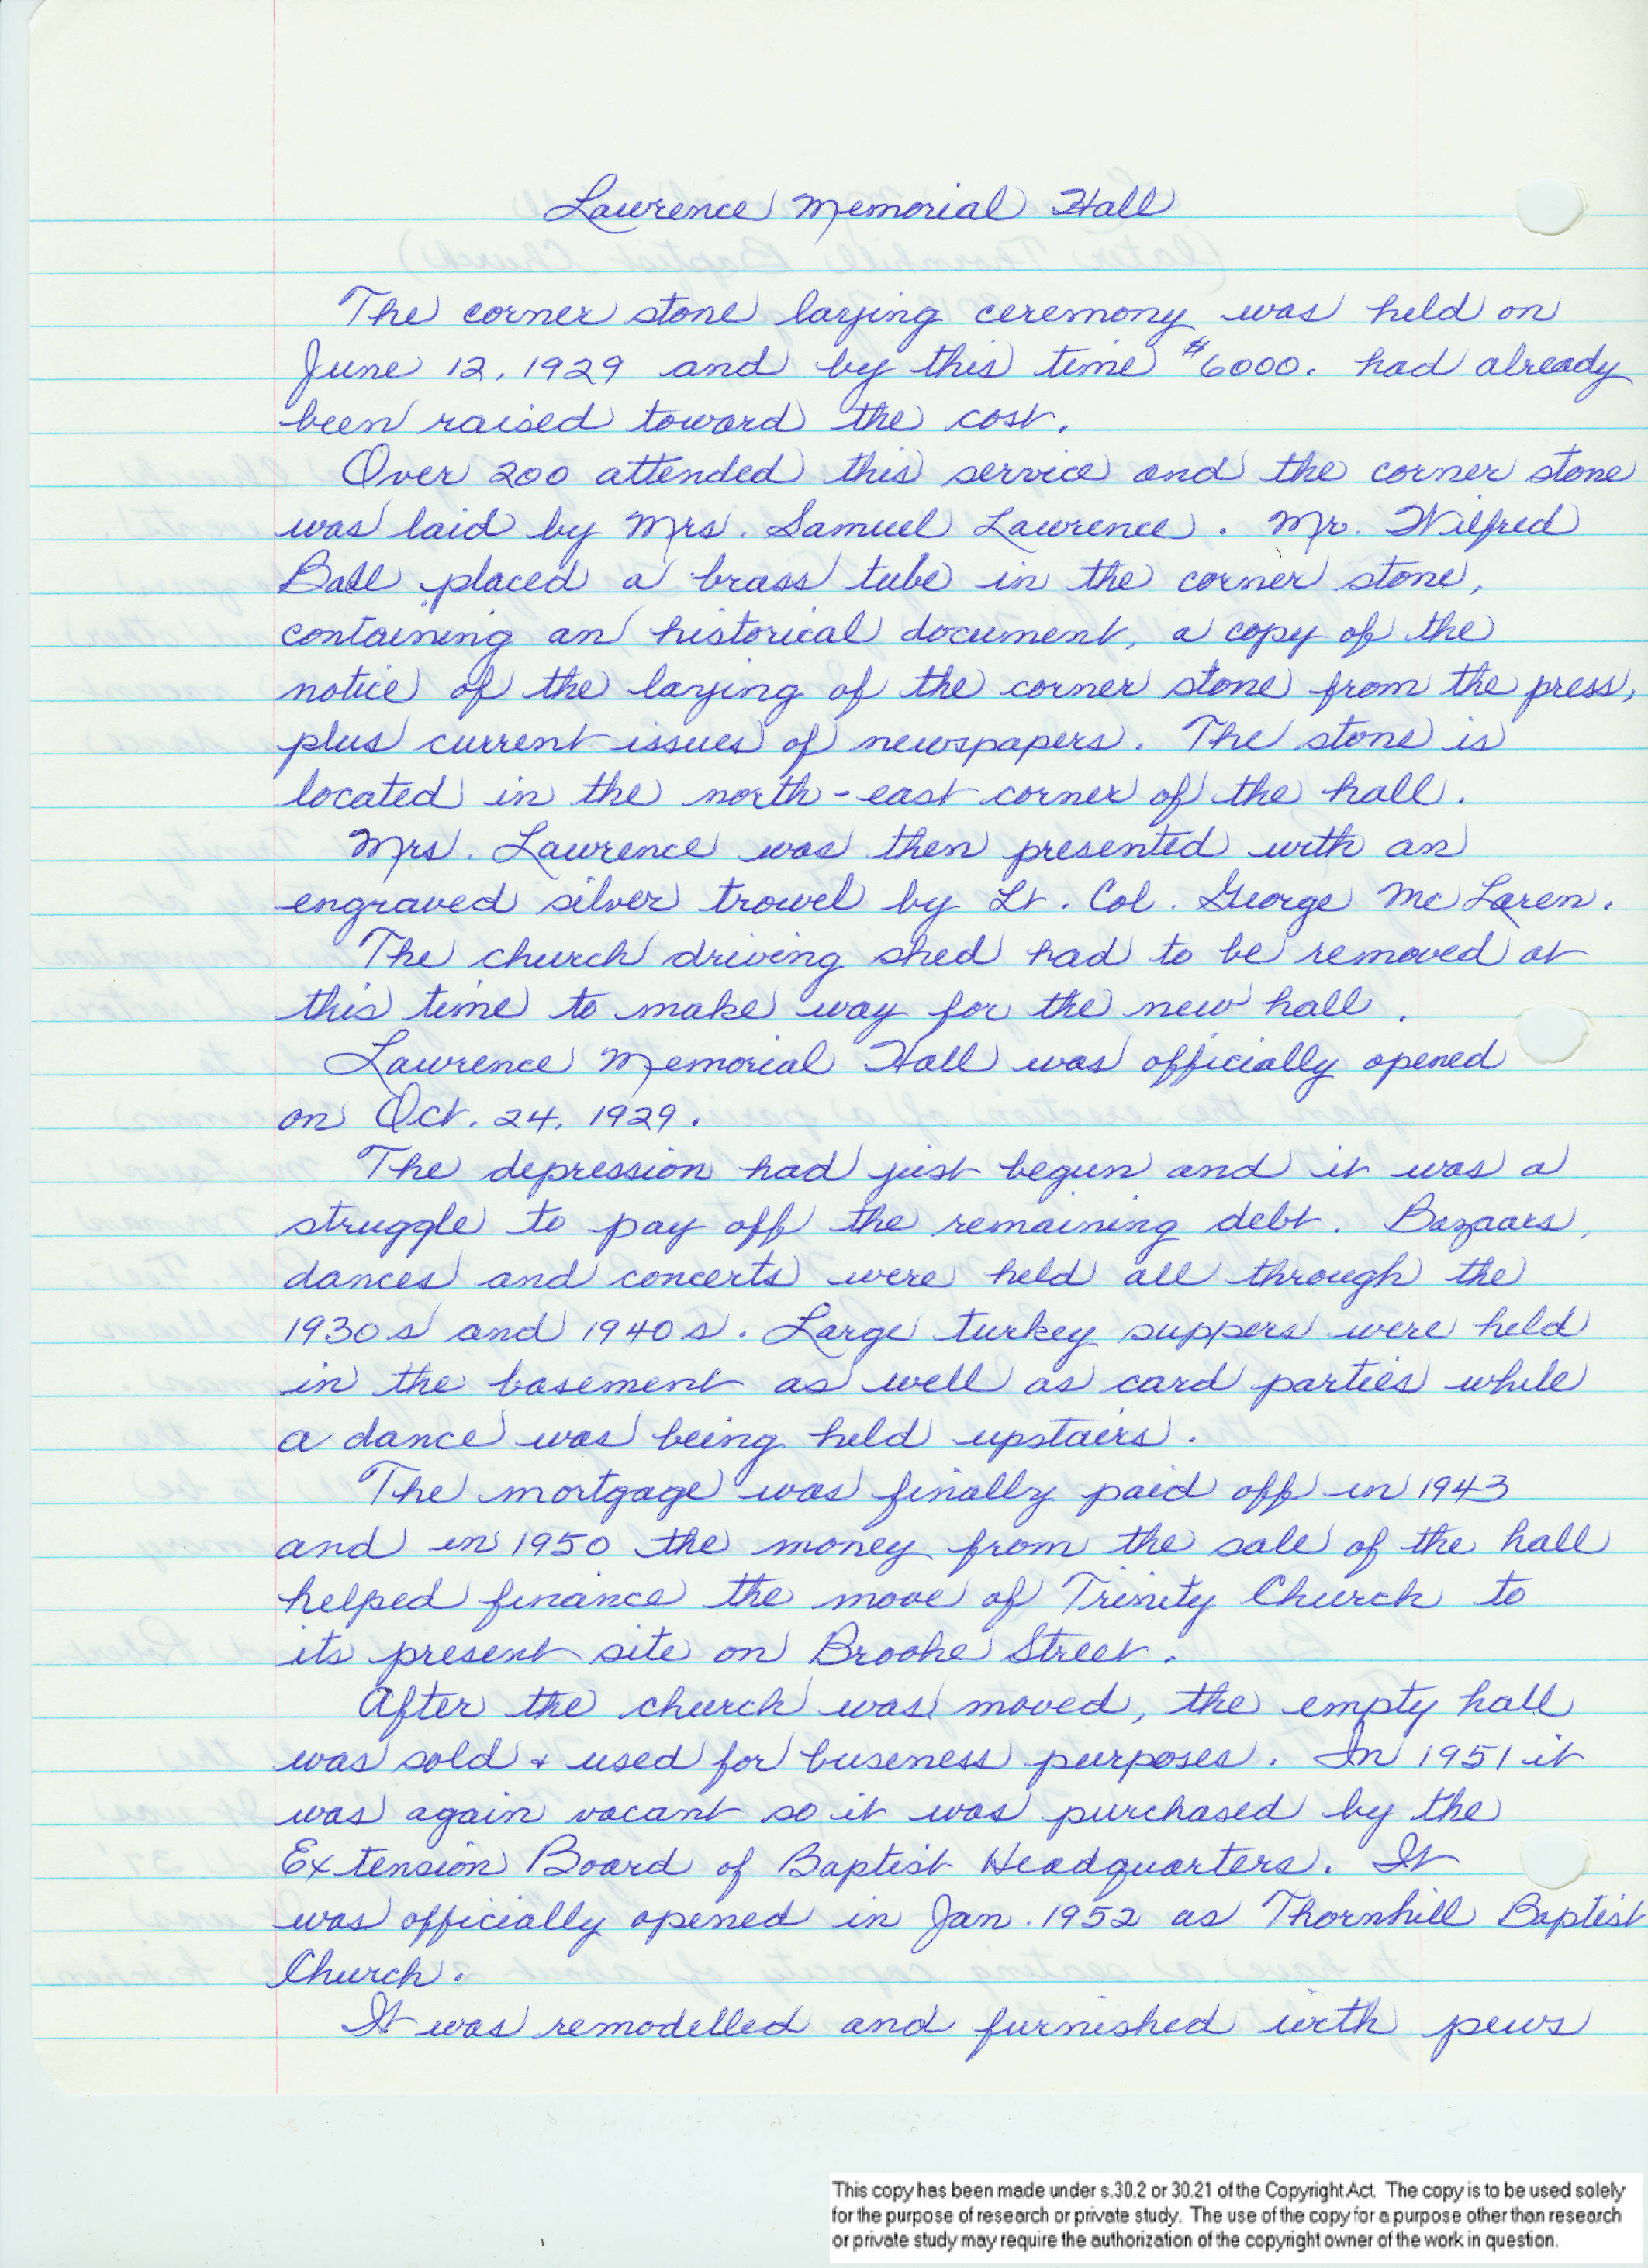 Lawrence Memorial Hall
The corner stone laying ceremony was held on
June 12, 1929 and by this time $6000. had already
been raised toward the cost.
Over 200 attended this service and the corner stone
was laid by Mrs. Samuel Lawrence. Mr. Wilfred
Ball placed a brass tube in the corner stone,
containing an historical document, a copy of the
notice of the laying of the corner stone from the press,
plus current issues of newspapers. The stone is
located in the north-east corner of the hall.
Mrs. Lawrence was then presented with an
engraved silver trowel by Lt. Col. George McLaren.
The church driving shed had to be removed at
this time to make way for the new hall.
Lawrence Memorial Hall was officially opened
on Oct. 24, 1929.
The depression had just begun and it was a
struggle to pay off the remaining debt. Bazaars,
dances and concerts were held all through the
1930s and 1940s. Large turkey suppers were held
in the basement as well as card parties while
a dance was being held upstairs.
The mortgage was finally paid off in 1943
and in 1950 the money from the sale of the hall
helped finance the move of Trinity Church to
its present site on Brooke Street.
After the church was moved, the empty hall
was sold + used for buseness purposes. In 1951 it
was again vacant so it was purchased by the
Extension Board of Baptist Headquarters. It
was officially opened in Jan. 1952 as Thornhill Baptist
Church.
It was remodelled and furnished with pews
This copy has been made under s.30.2 or 30.21 of the Copyright Act. The copy is to be used solely
for the purpose of research or private study. The use of the copy for a purpose other than research
or private study may require the authorization of the copyright owner of the work in question.